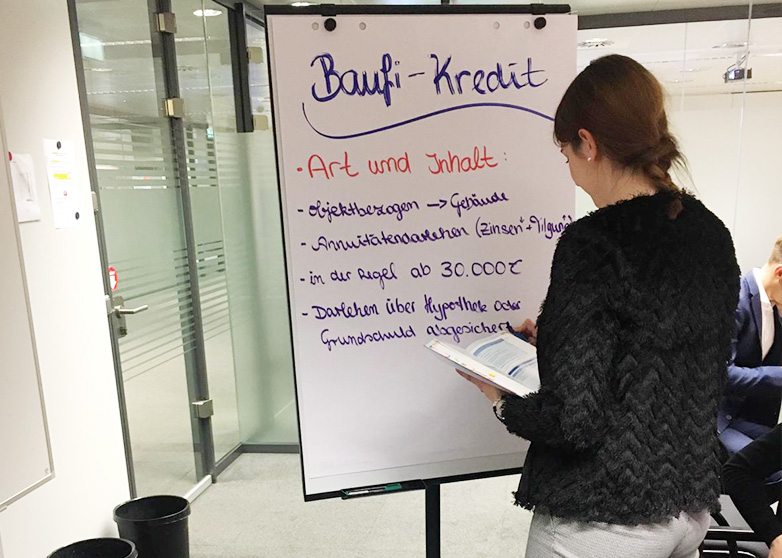 Baufi-Kredit
· Art und Inhalt:
- objektbezogen → Gebäude
- Annuitätendarlehen (Zinsen + Tilgung)
- in der Regel ab 30.000€
- Darlehen über Hypothek oder
Grundschuld abgesichert